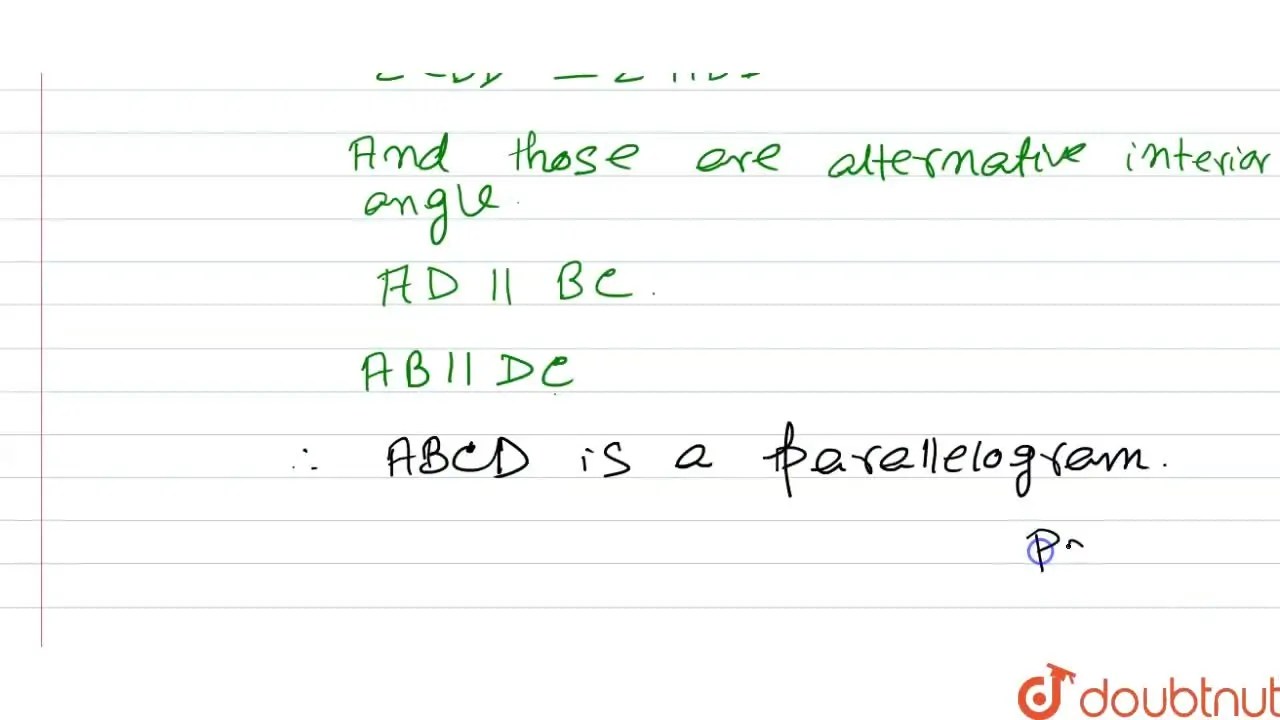 And those are alternative interior
angle.
AD || BC.
AB || DC
∴ ABCD is a parallelogram.
doubtnut